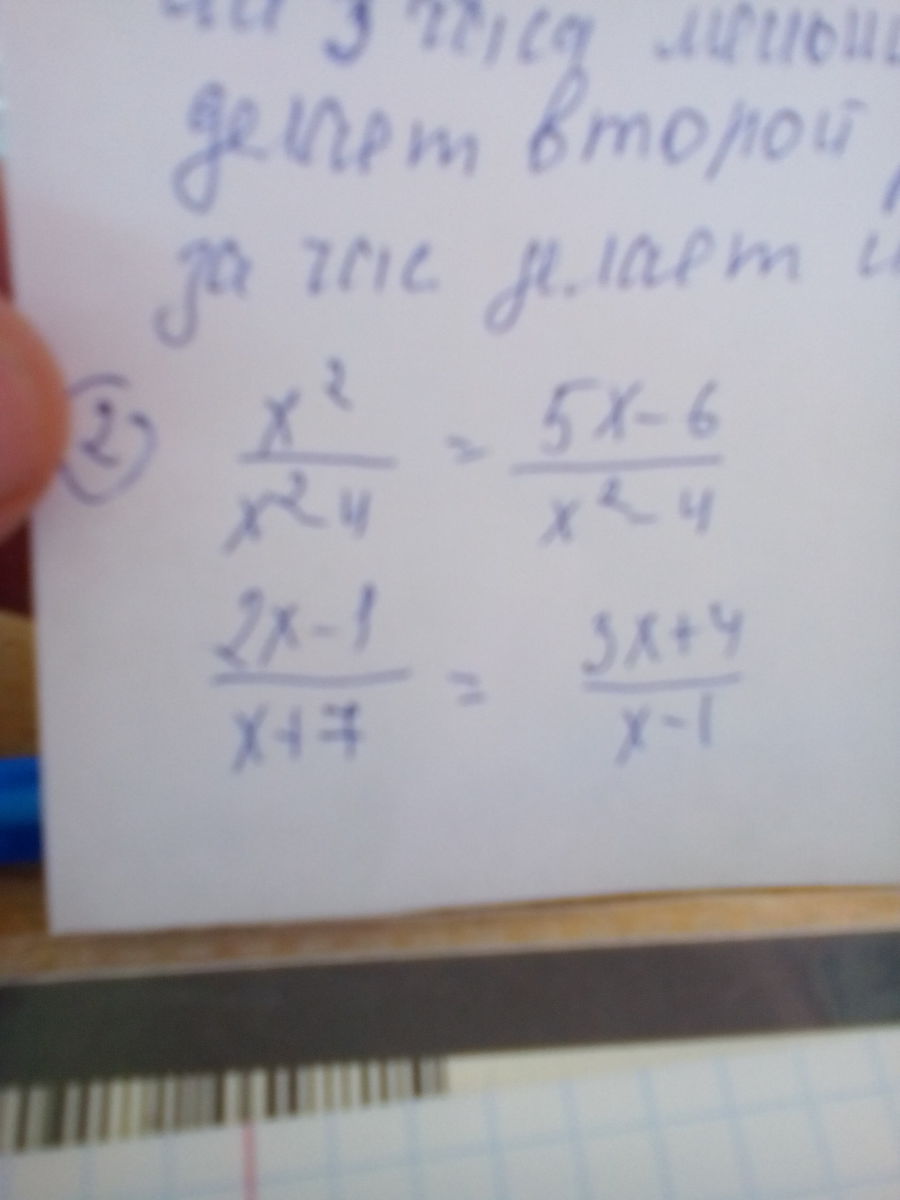 3 часа
делает второй
за час делает
2
x² / x² - 4 = 5x - 6 / x² - 4
2x - 1 / x + 7 = 3x + 4 / x - 1